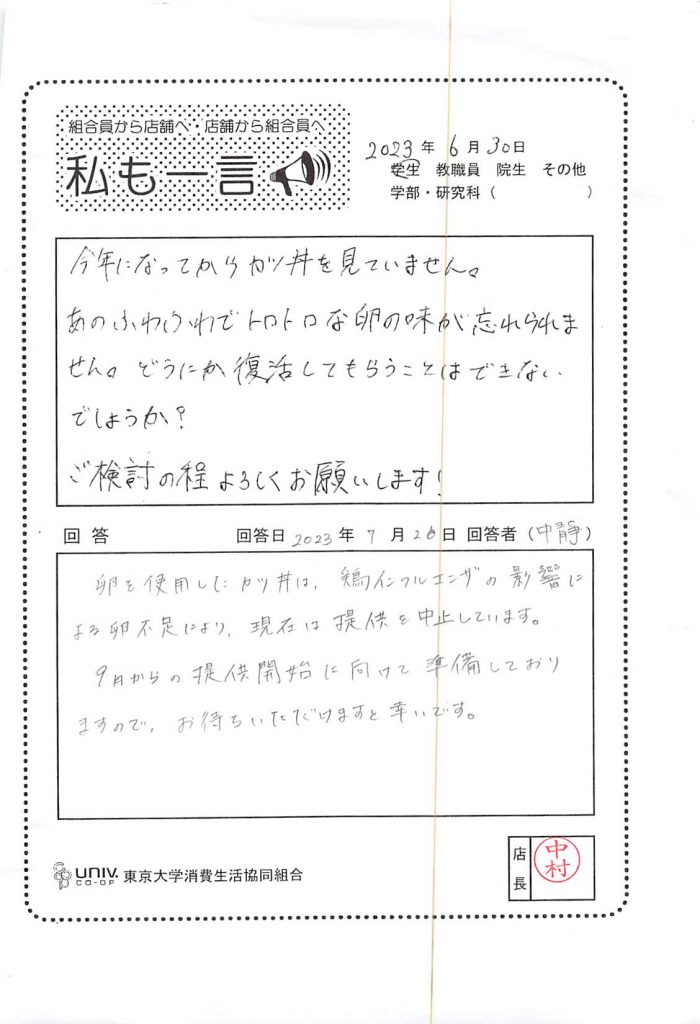 組合員から店舗へ・店舗から組合員へ
私も一言
2023年 6月30日
学生 教職員 院生 その他
学部・研究科（ ）
今年になってからカツ丼を見ていません。
あのふわふわでトロトロな卵の味が忘れられま
せん。どうにか復活してもらうことはできない
でしょうか？
ご検討の程よろしくお願いします！
回答 回答日 2023年 7月26日 回答者（中静）
卵を使用したカツ丼は、鶏インフルエンザの影響に
よる卵不足により、現在は提供を中止しています。
9月からの提供開始に向けて準備しており
ますので、お待ちいただけますと幸いです。
店長
中村
UNIV. CO-OP 東京大学消費生活協同組合